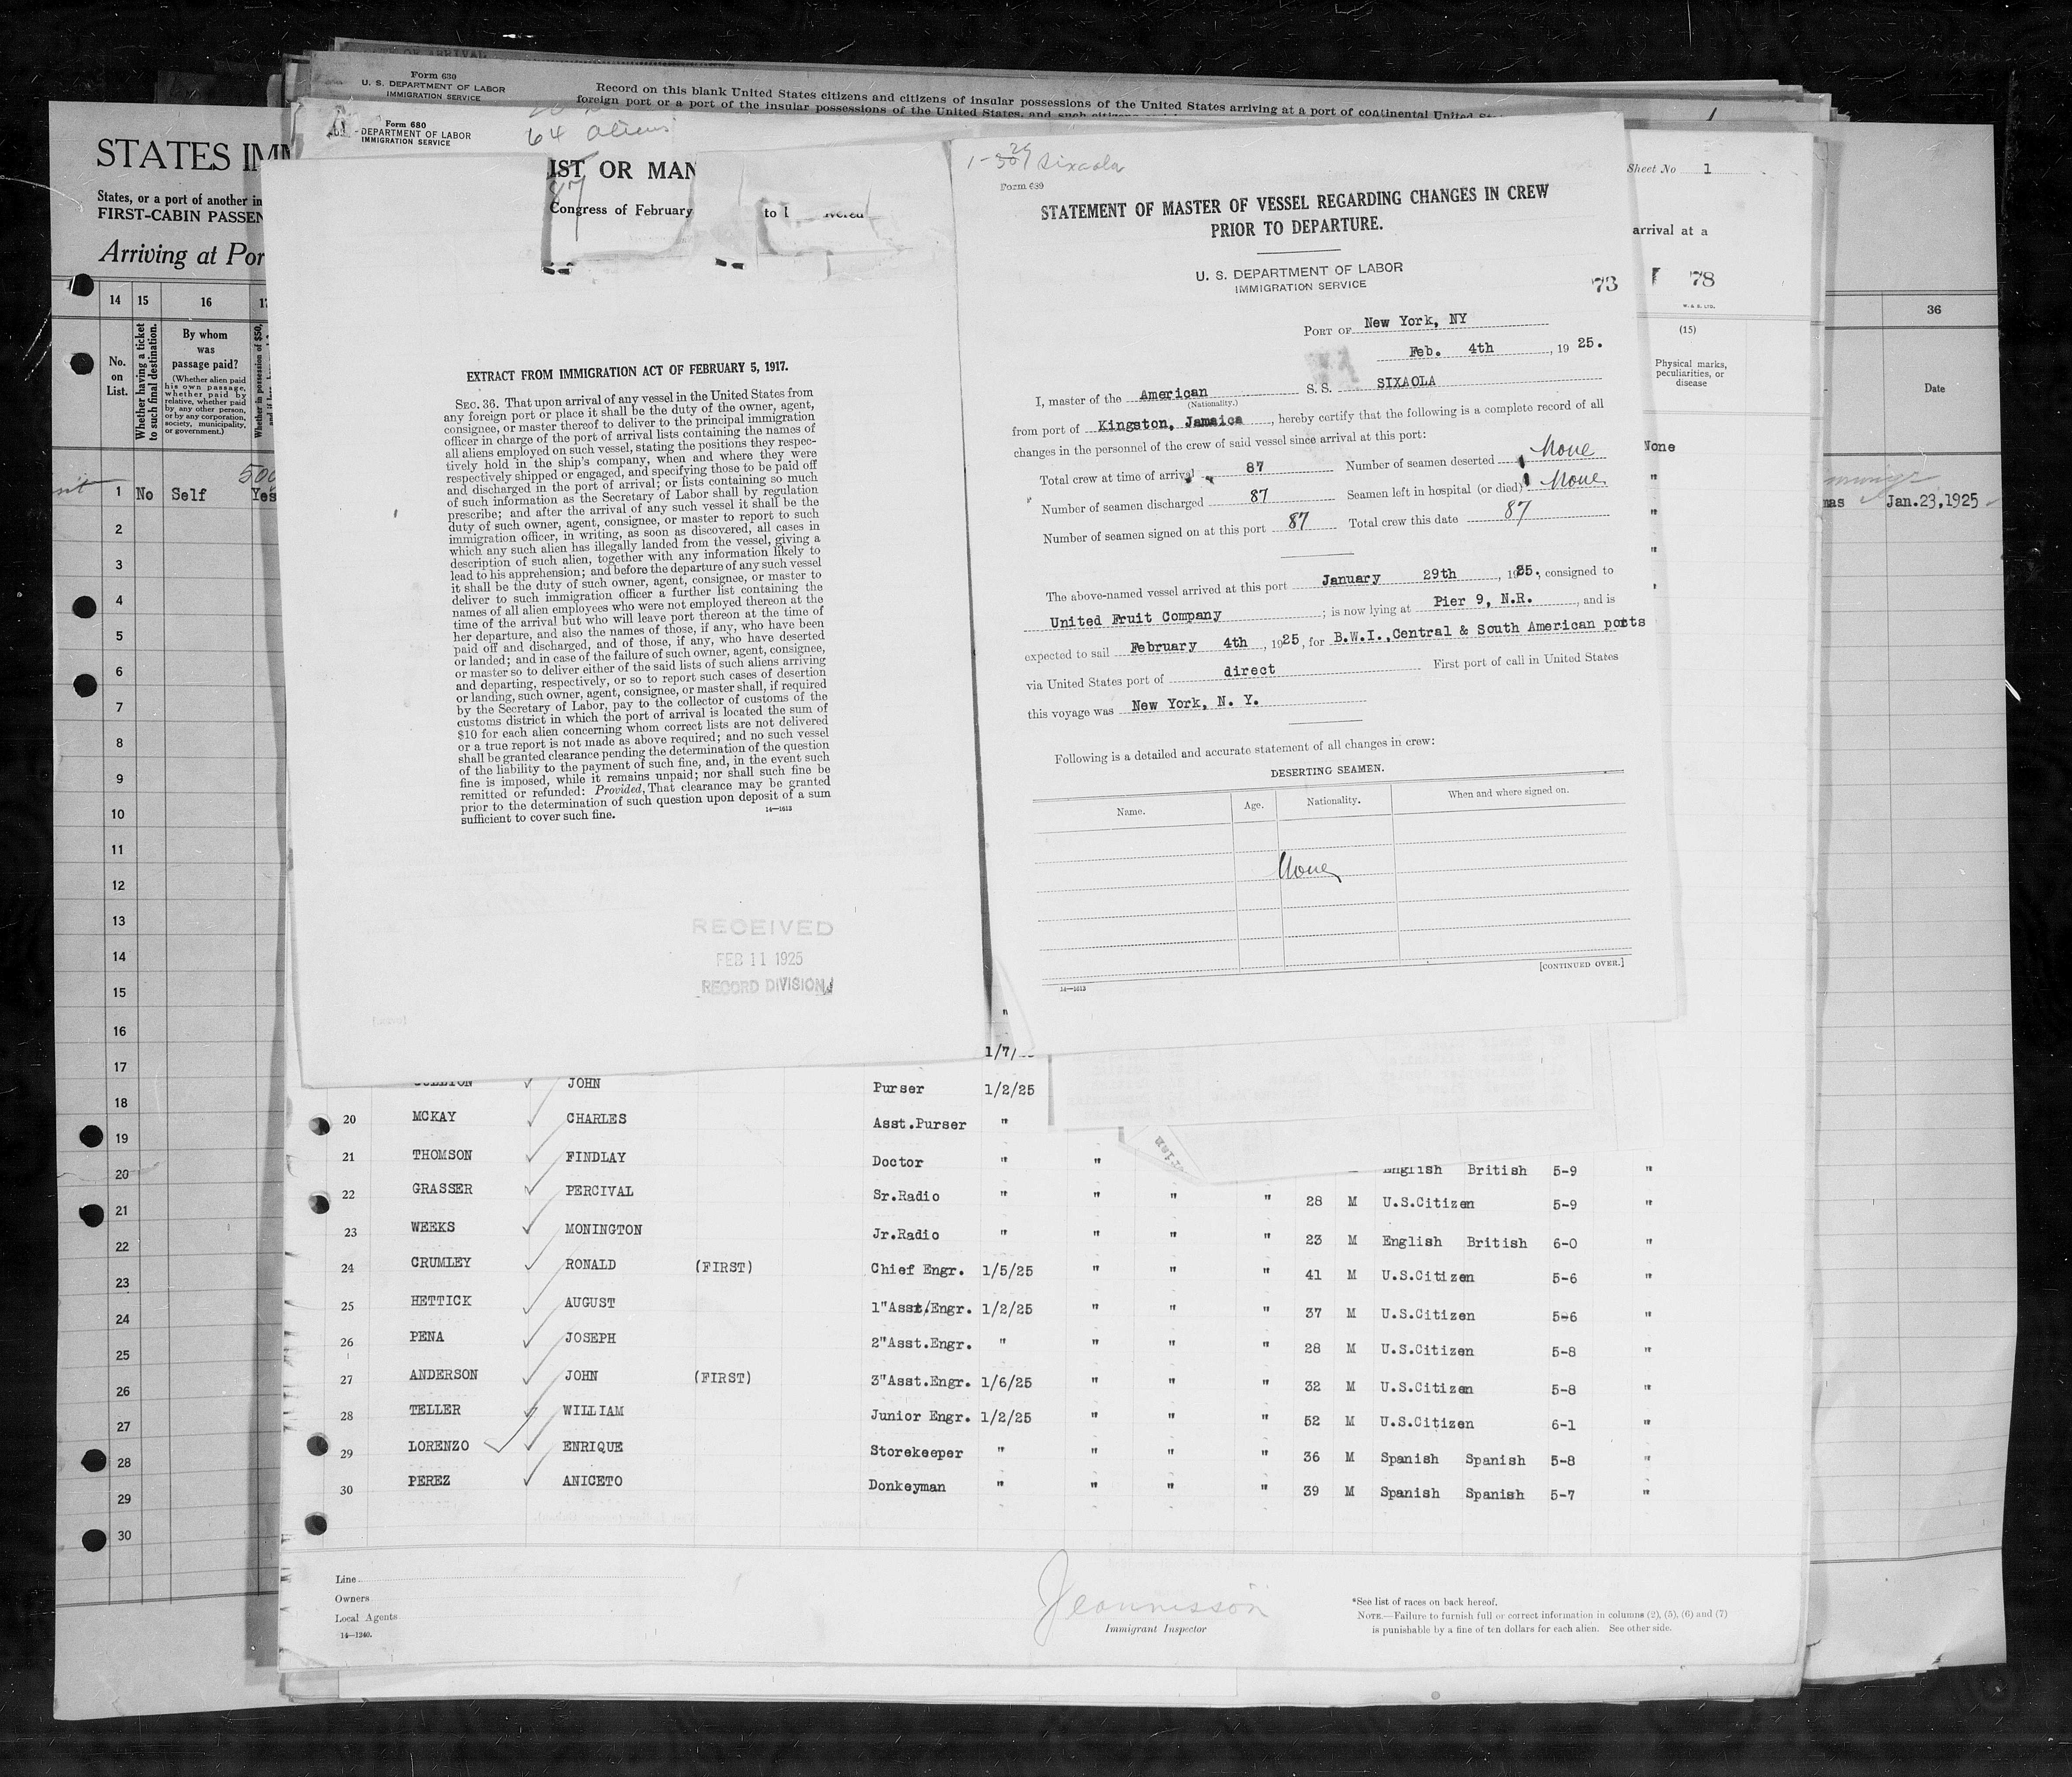 Form 630
U. S. DEPARTMENT OF LABOR
IMMIGRATION SERVICE
Record on this blank United States citizens and citizens of insular possessions of the United States arriving at a port of continental United
foreign port or a port of the insular possessions of the United States, and such
STATES
States, or a port of another
FIRST-CABIN
Arriving at
14 15 16
No. on List.
Whether having a ticket to such final destination.
By whom was passage paid?
(Whether alien paid his own passage, whether paid by relative, whether paid by any other person, or by any corporation, society, municipality, or government.)
Whether in possession of $50,
1 No Self Yes
2
3
4
5
6
7
8
9
10
11
12
13
14
15
16
17
18
19
20
21
22
23
24
25
26
27
28
29
30
Form 680
DEPARTMENT OF LABOR
IMMIGRATION SERVICE
64 aliens
OR
87
Congress of February to
EXTRACT FROM IMMIGRATION ACT OF FEBRUARY 5, 1917.
SEC. 36. That upon arrival of any vessel in the United States from
any foreign port or place it shall be the duty of the owner, agent,
consignee, or master thereof to deliver to the principal immigration
officer in charge of the port of arrival lists containing the names of
all aliens employed on such vessel, stating the positions they respec-
tively hold in the ship's company, when and where they were
respectively shipped or engaged, and specifying those to be paid off
and discharged in the port of arrival; or lists containing so much
of such information as the Secretary of Labor shall by regulation
prescribe; and after the arrival of any such vessel it shall be the
duty of such owner, agent, consignee, or master to report to such
immigration officer, in writing, as soon as discovered, all cases in
which any such alien has illegally landed from the vessel, giving a
description of such alien, together with any information likely to
lead to his apprehension; and before the departure of any such vessel
it shall be the duty of such owner, agent, consignee, or master to
deliver to such immigration officer a further list containing the
names of all alien employees who were not employed thereon at the
time of the arrival but who will leave port thereon at the time of
her departure, and also the names of those, if any, who have been
paid off and discharged, and of those, if any, who have deserted
or landed; and in case of the failure of such owner, agent, consignee,
or master so to deliver either of the said lists of such aliens arriving
and departing, respectively, or so to report such cases of desertion
or landing, such owner, agent, consignee, or master shall, if required
by the Secretary of Labor, pay to the collector of customs of the
customs district in which the port of arrival is located the sum of
$10 for each alien concerning whom correct lists are not delivered
or a true report is not made as above required; and no such vessel
shall be granted clearance pending the determination of the question
of the liability to the payment of such fine, and, in the event such
fine is imposed, while it remains unpaid; nor shall such fine be
remitted or refunded: Provided, That clearance may be granted
prior to the determination of such question upon deposit of a sum
sufficient to cover such fine.
14—1613
RECEIVED
FEB 11 1925
RECORD DIVISION
Sixaola
Form 689
STATEMENT OF MASTER OF VESSEL REGARDING CHANGES IN CREW
PRIOR TO DEPARTURE.
U. S. DEPARTMENT OF LABOR
IMMIGRATION SERVICE
73
PORT OF New York, NY
Feb. 4th, 1925.
I, master of the American S. S. SIXAOLA
(Nationality.)
from port of Kingston, Jamaica, hereby certify that the following is a complete record of all
changes in the personnel of the crew of said vessel since arrival at this port:
Total crew at time of arrival 87 Number of seamen deserted None
Number of seamen discharged 87 Seamen left in hospital (or died) None
Number of seamen signed on at this port 87 Total crew this date 87
The above-named vessel arrived at this port January 29th, 1925., consigned to
United Fruit Company; is now lying at Pier 9, N.R., and is
expected to sail February 4th, 1925, for B.W.I.,Central & South American ports
via United States port of direct First port of call in United States
this voyage was New York, N. Y.
Following is a detailed and accurate statement of all changes in crew:
DESERTING SEAMEN.
Name. Age. Nationality. When and where signed on.
None
[CONTINUED OVER.]
14—1613
Sheet No 1
arrival at a
78
(15)
Physical marks, peculiarities, or disease
None
"
"
"
36
Date
Jan.23,1925
1/7/
JOHN Purser 1/2/25
20 MCKAY CHARLES Asst.Purser "
21 THOMSON FINDLAY Doctor " " English British 5-9 "
22 GRASSER PERCIVAL Sr.Radio " " " " 28 M U.S.Citizen 5-9 "
23 WEEKS MONINGTON Jr.Radio " " " " 23 M English British 6-0 "
24 CRUMLEY RONALD (FIRST) Chief Engr. 1/5/25 " " " 41 M U.S.Citizen 5-6 "
25 HETTICK AUGUST 1"Asst/Engr. 1/2/25 " " " 37 M U.S.Citizen 5-6 "
26 PENA JOSEPH 2"Asst.Engr. " " " " 28 M U.S.Citizen 5-8 "
27 ANDERSON JOHN (FIRST) 3"Asst.Engr. 1/6/25 " " " 32 M U.S.Citizen 5-8 "
28 TELLER WILLIAM Junior Engr. 1/2/25 " " " 52 M U.S.Citizen 6-1 "
29 LORENZO ENRIQUE Storekeeper " " " " 36 M Spanish Spanish 5-8 "
30 PEREZ ANICETO Donkeyman " " " " 39 M Spanish Spanish 5-7 "
Line
Owners
Local Agents
14—1240.
Immigrant Inspector
*See list of races on back hereof.
NOTE.—Failure to furnish full or correct information in columns (2), (5), (6) and (7)
is punishable by a fine of ten dollars for each alien. See other side.